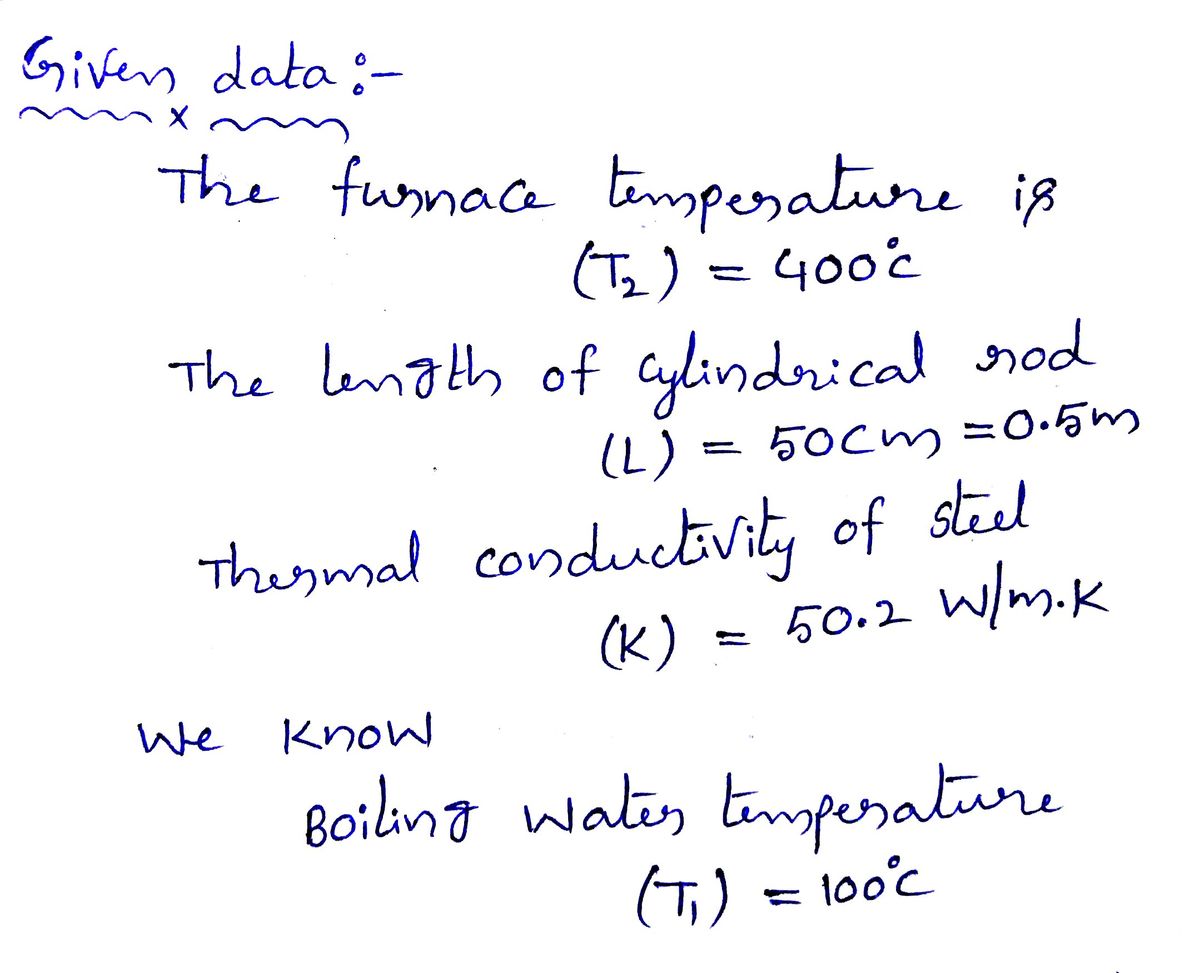 Given data:-
x
The furnace temperature is
(T₂) = 400°c
The length of cylindrical rod
(L) = 50cm = 0.5m
Thermal conductivity of steel
(K) = 50.2 W/m.K
We know
Boiling water temperature
(T₁) = 100°c